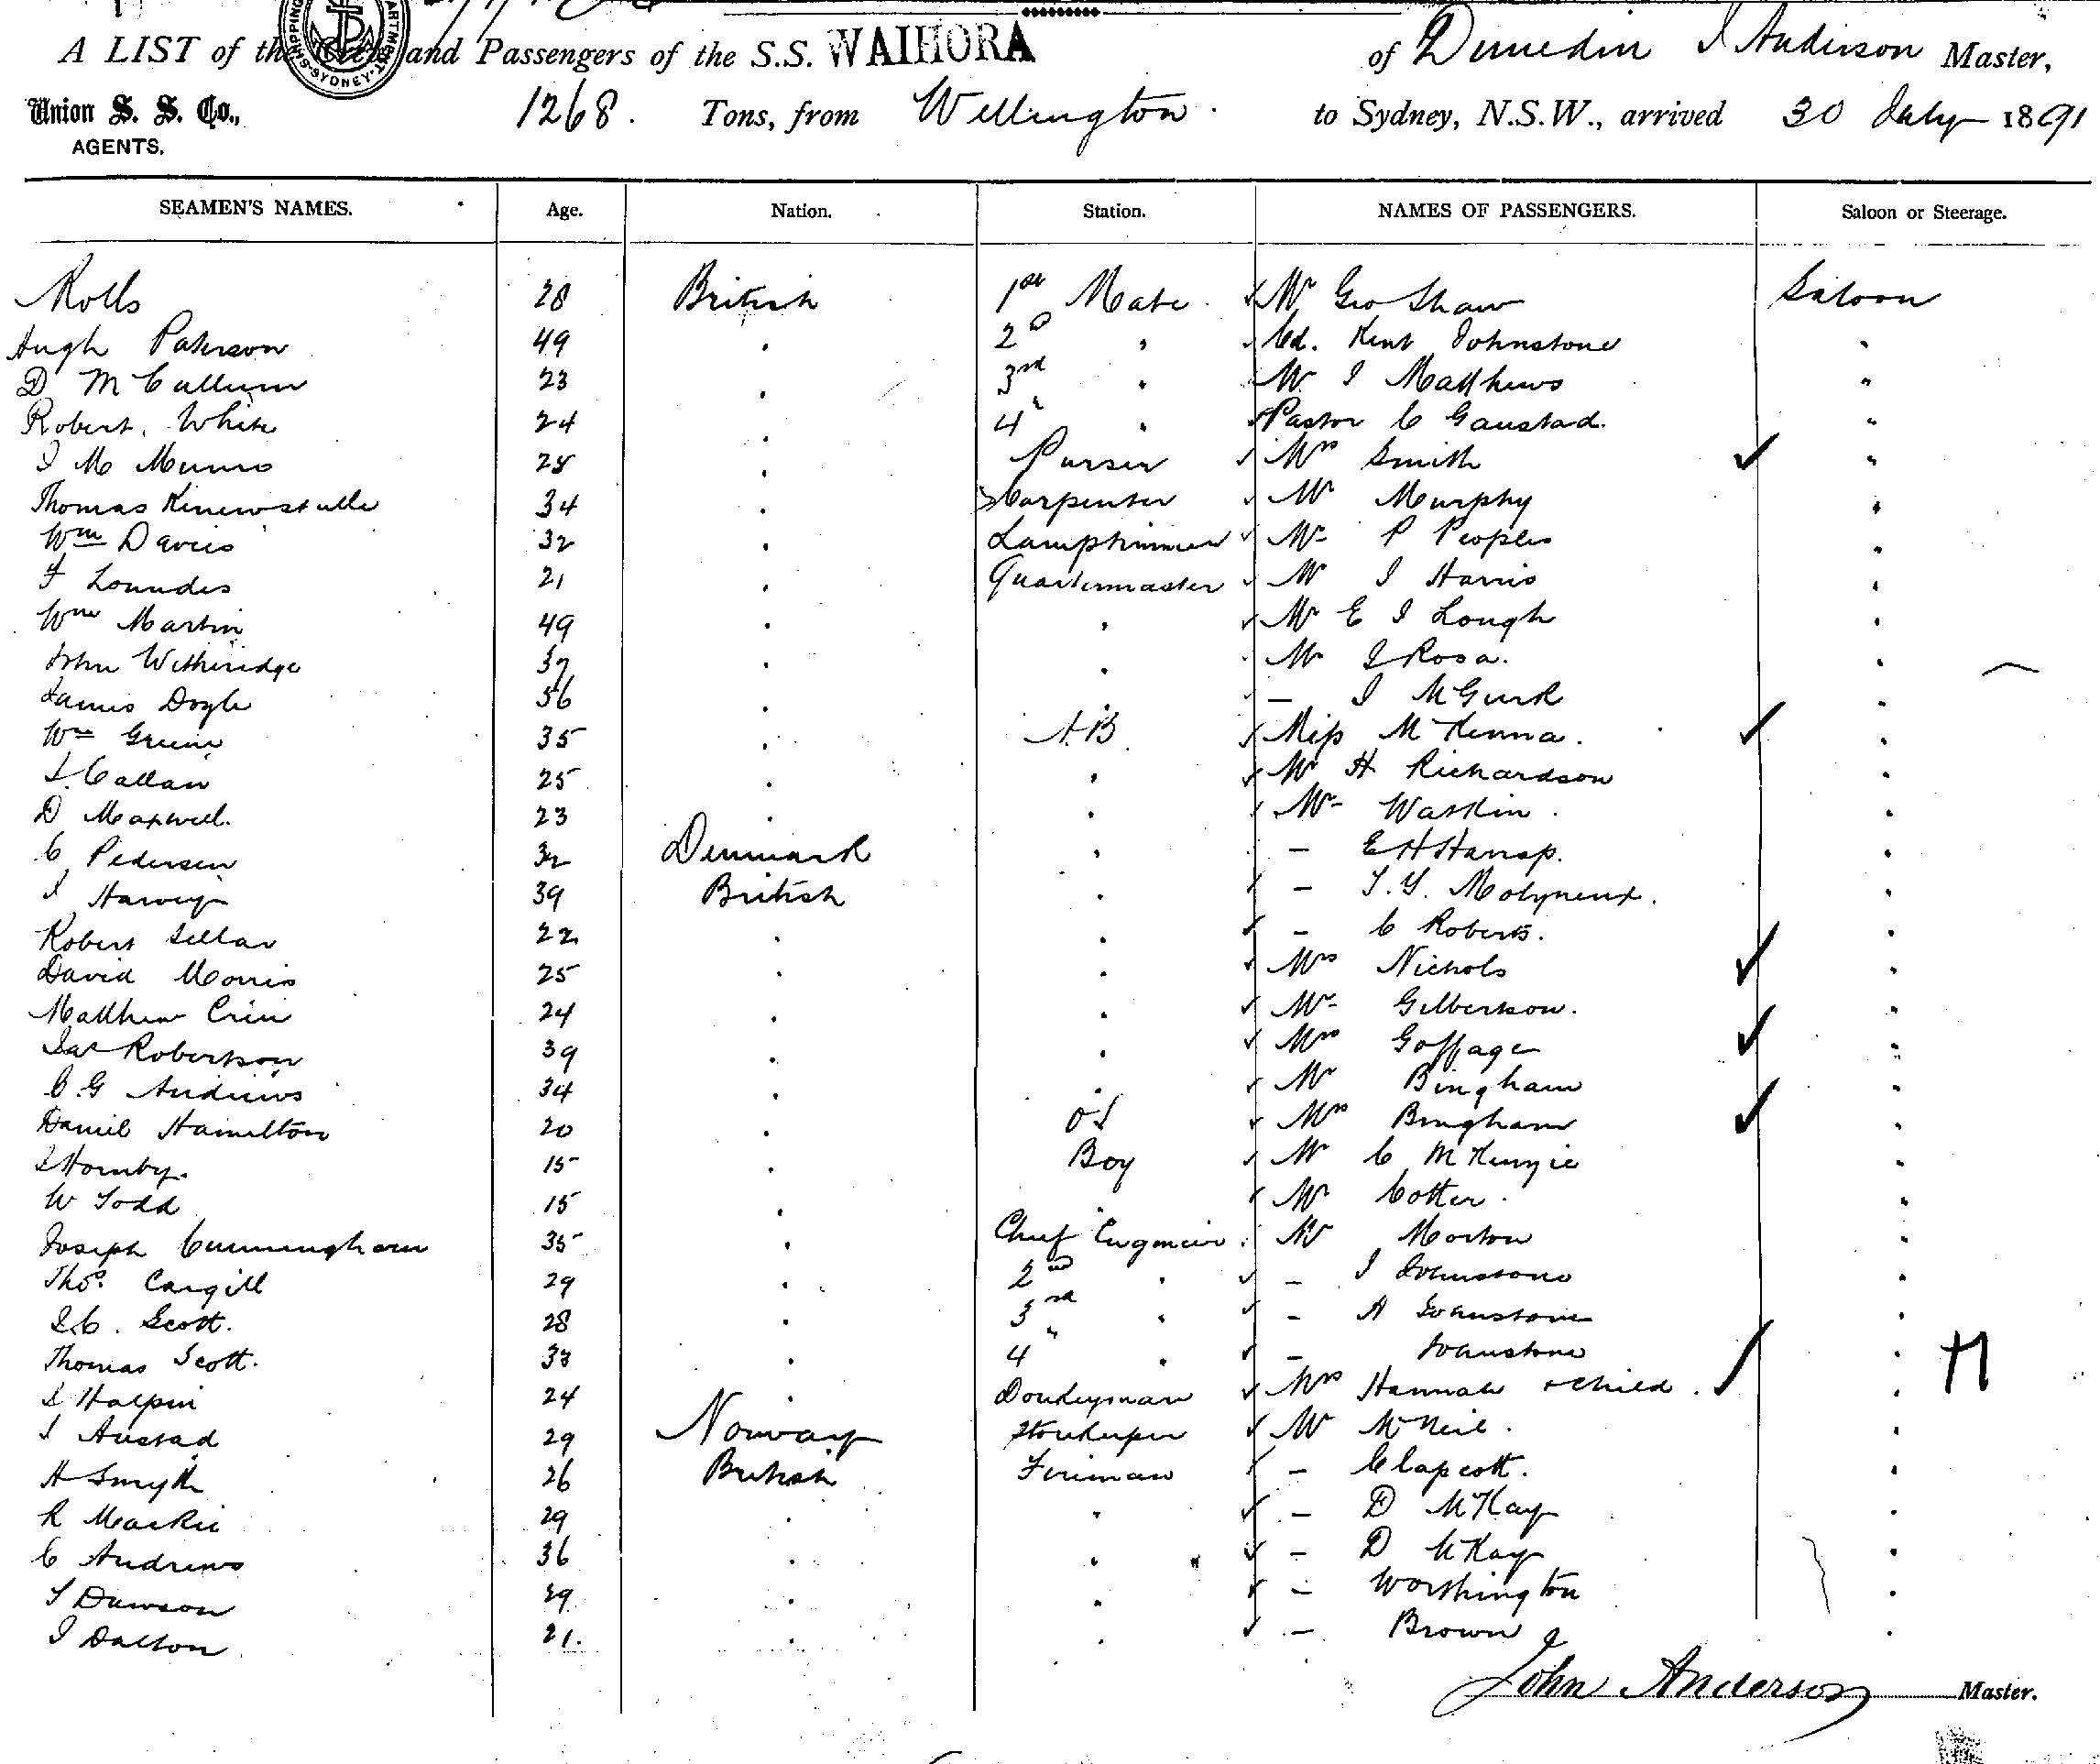 A LIST of the Crew and Passengers of the S.S. WAIHORA of Dunedin J Anderson Master,
Union S. S. Co., 1268. Tons, from Wellington. to Sydney, N.S.W., arrived 30 July 1891
AGENTS.
SEAMEN'S NAMES. Age. Nation. Station. NAMES OF PASSENGERS. Saloon or Steerage.
Rolls 28 British 1st Mate. Mr Geo Shaw Saloon
Hugh Paterson 49 2d " Cd. Kent Johnstone "
D McCallum 23 3rd " Mr J Matthews "
Robert White 24 4 " Pastor C Gaustad. "
J M Munro 28 Purser Mrs Smith "
Thomas 34 Carpenter Mr Murphy "
Wm Davies 32 Lamptrimmer Mr P Peoples "
F Lowndes 21 Quartermaster Mr J Harris "
Wm Martin 49 " Mr E J Lough "
John Witheridge 37 " Mr J Rosa. "
James Doyle 56 " — J McGurk "
Wm Green 35 A.B. Miss McKenna. "
J Callan 25 " Mr H Richardson "
D Maxwell. 23 " Mr Waskin. "
C Pedersen 32 Denmark " — E H Harrap. "
J Harvey 39 British " — T. Y. Molyneux. "
Robert Sellar 22 " — C Roberts. "
David Morris 25 " Mrs Nichols "
Matthew 24 " Mr Gilbertson. "
Jas Robertson 39 " Mrs Goffage "
C. G Andrews 34 " Mr Bingham "
Daniel Hamilton 20 OS Mrs Bingham "
J Hornby. 15 Boy Mr C McKenzie "
W Todd 15 " Mr Cotter. "
Joseph Cunningham 35 Chief Engineer. Mr Morton "
Thos. Cargill 29 2nd " — J Johnstone "
J. C. Scott. 28 3rd " — A Johnstone "
Thomas Scott. 33 4 " — Johnstone "
J Halpin 24 Donkeyman Mrs Hannah & child. " H
J Austad 29 Norway Storekeeper Mr McNeil. "
H Smyth 26 British Fireman — Clapcott. "
R Mackie 29 " — D McKay "
C Andrews 36 " — D McKay "
J Dawson 29 " — Worthington "
J Dalton 21. " — Brown "
John Anderson Master.